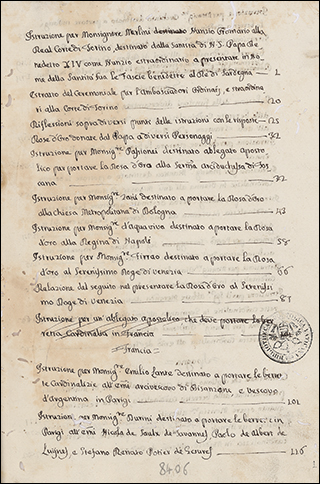 Istruzione per Monsignore Merlini destinato Nunzio Ordinario alla
Real Corte di Torino destinato dalla Santità di N.S. Papa Be
nedetto XIV come Nunzio estraordinario a presentare in No
me della Santità sua le Fascie benedette al Rè di Sardegna 1
Estratto del Ceremoniale per l'Ambasciatori Ordinari, e straordina
ri alla Corte di Torino 20
Riflessioni sopra diversi punti delle istruzioni con le risposte 25
Rose d'Oro donate dal Papa a diversi Personaggi 32
Istruzione per Monsig.re Passionei destinato ablegato aposto
lico per portare la Rosa d'oro alla Serma Arciduchessa di Tos
cana 32
Istruzione per Monsig.re destinato a portare la Rosa d'oro
alla chiesa Metropolitana di Bologna 43
Istruzione per Monsig.re d'aquaviva destinato a portare la Rosa
d'oro alla Regina di Napoli 58
Istruzione per Monsig.re Firrao destinato a portare la Rosa
d'oro al Serenissimo Doge di venezia 66
Relazione del seguito nel presentare la Rosa d'oro al Serenissi
mo Doge di Venezia 83
Istruzione per un ablegato apostolico che deve portare la ber
retta Cardinalizia in Francia
Francia
Istruzione per Monsig.re Emilio destinato a portare le berre
te Cardinalizie all'emi arcivescovo di Bisanzone, e vescovo
d'argentina in Parigi 101
Istruzione per Monsig.re Durini destinato a portare le berrette in
Parigi all'emi Nicola de Saulx de Tavannes Paolo de Albert de
Luijnes, e Stefano Renato Potier de Gesvres 116
8406